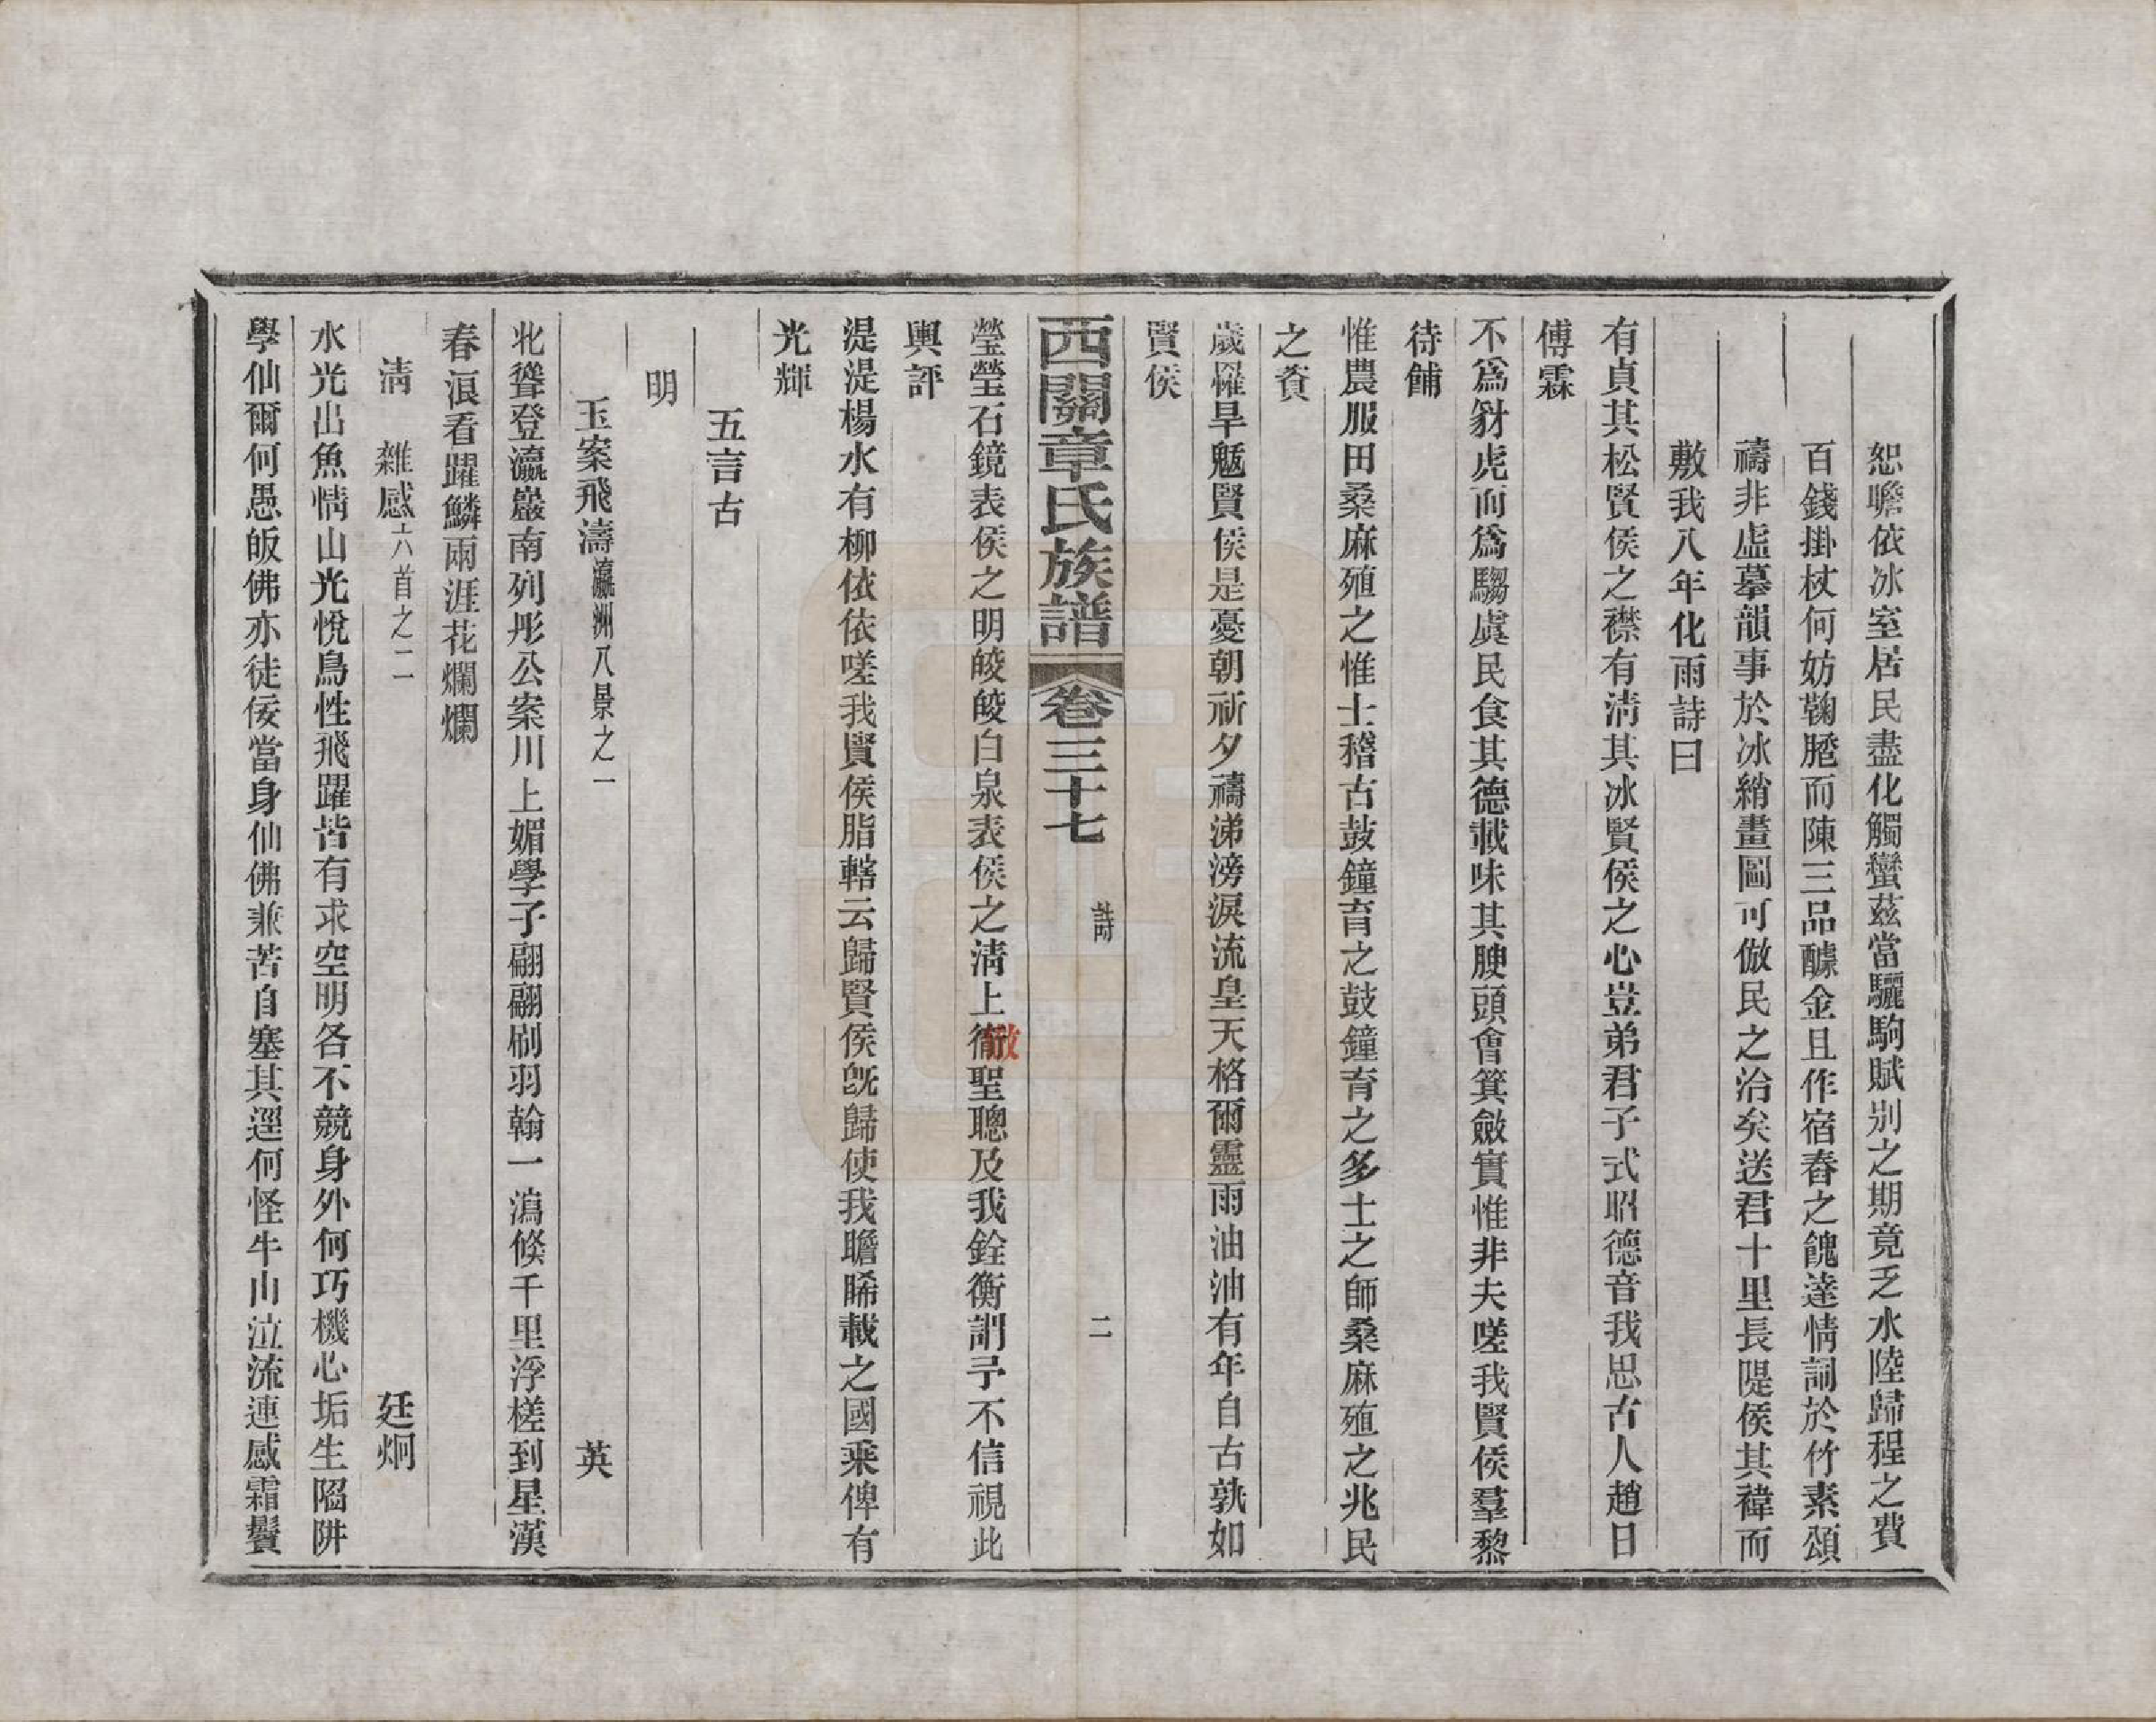 恕瞻依冰室居民盡化觸蠻茲當驪駒賦別之期竟乏水陸歸程之費
百錢掛杖何妨鞠䐁而陳三品醵金且作宿舂之餽達情詞於竹素頌
禱非虛摹韻事於冰綃畫圖可倣民之治矣送君十里長隄侯其禕而
敷我八年化雨詩曰
有貞其松賢侯之襟有清其冰賢侯之心豈弟君子式昭德音我思古人趙日
傅霖
不爲豺虎而爲騶虞民食其德載味其腴頭會箕斂實惟非夫嗟我賢侯羣黎
待餔
惟農服田桑麻殖之惟士稽古鼓鐘育之鼓鐘育之多士之師桑麻殖之兆民
之資
歲罹旱魃賢侯是憂朝祈夕禱涕滂淚流皇天格爾靈雨油油有年自古孰如
賢侯
西關章氏族譜 卷三十七 詩 二
瑩瑩石鏡表侯之明皎皎白泉表侯之清上徹聖聰及我銓衡謂予不信視此
輿評
湜湜楊水有柳依依嗟我賢侯脂轄云歸賢侯旣歸使我瞻睎載之國乘俾有
光輝
五言古
明
玉案飛濤瀛洲八景之一 英
北聳登瀛巖南列彤公案川上媚學子翩翩刷羽翰一瀉倏千里浮槎到星漢
春浪看躍鱗兩涯花爛爛
清 雜感六首之二 廷炯
水光出魚情山光悅鳥性飛躍皆有求空明各不競身外何巧機心垢生陷阱
學仙爾何愚皈佛亦徒佞當身仙佛兼苦自塞其逕何怪牛山泣流連感霜鬢